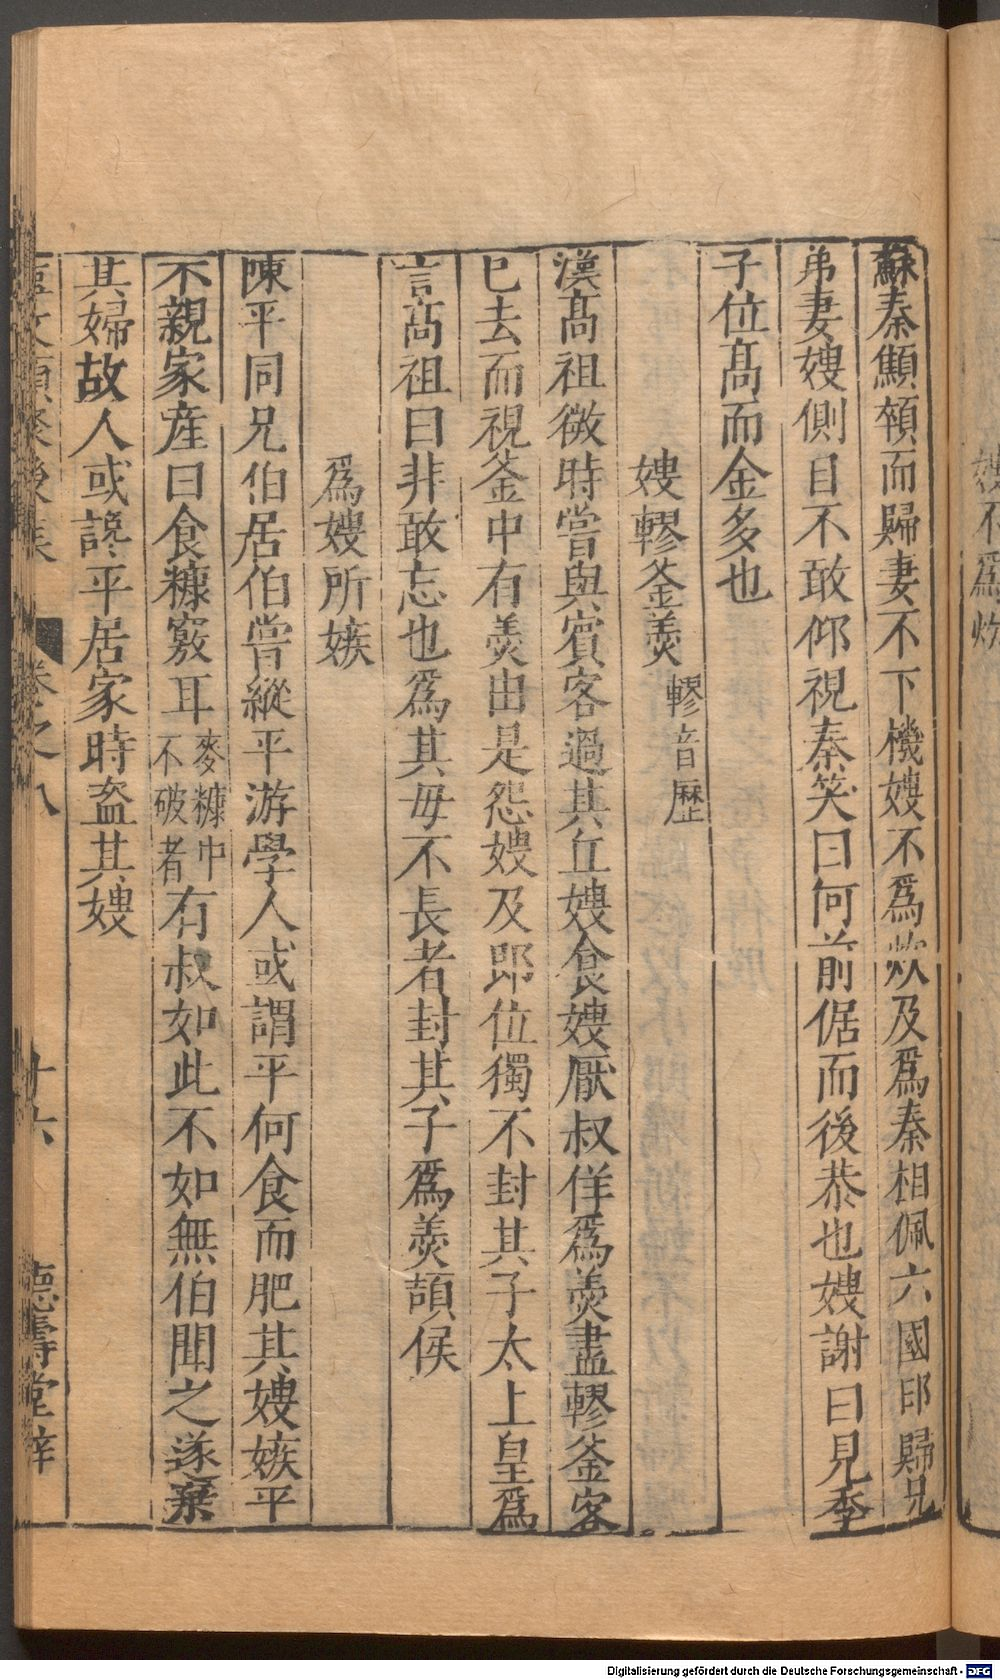 嫂不爲炊
蘇秦顦顇而歸妻不下機嫂不爲炊及爲秦相佩六國印歸兄
弟妻嫂側目不敢仰視秦笑曰何前倨而後恭也嫂謝曰見季
子位髙而金多也
嫂轑釜羮 轑音歷
漢髙祖微時嘗與賓客過其丘嫂食嫂厭叔佯爲羮盡轑釜客
已去而視釜中有羮由是怨嫂及即位獨不封其子太上皇爲
言髙祖曰非敢忘也爲其毋不長者封其子爲羮頡侯
爲嫂所嫉
陳平同兄伯居伯嘗縱平游學人或謂平何食而肥其嫂嫉平
不親家産曰食糠覈耳麥糠中不破者有叔如此不如無伯聞之遂棄
其婦故人或讒平居家時盗其嫂
事文類聚後集 卷之八 十六 德壽堂梓
Digitalisierung gefördert durch die Deutsche Forschungsgemeinschaft - DFG